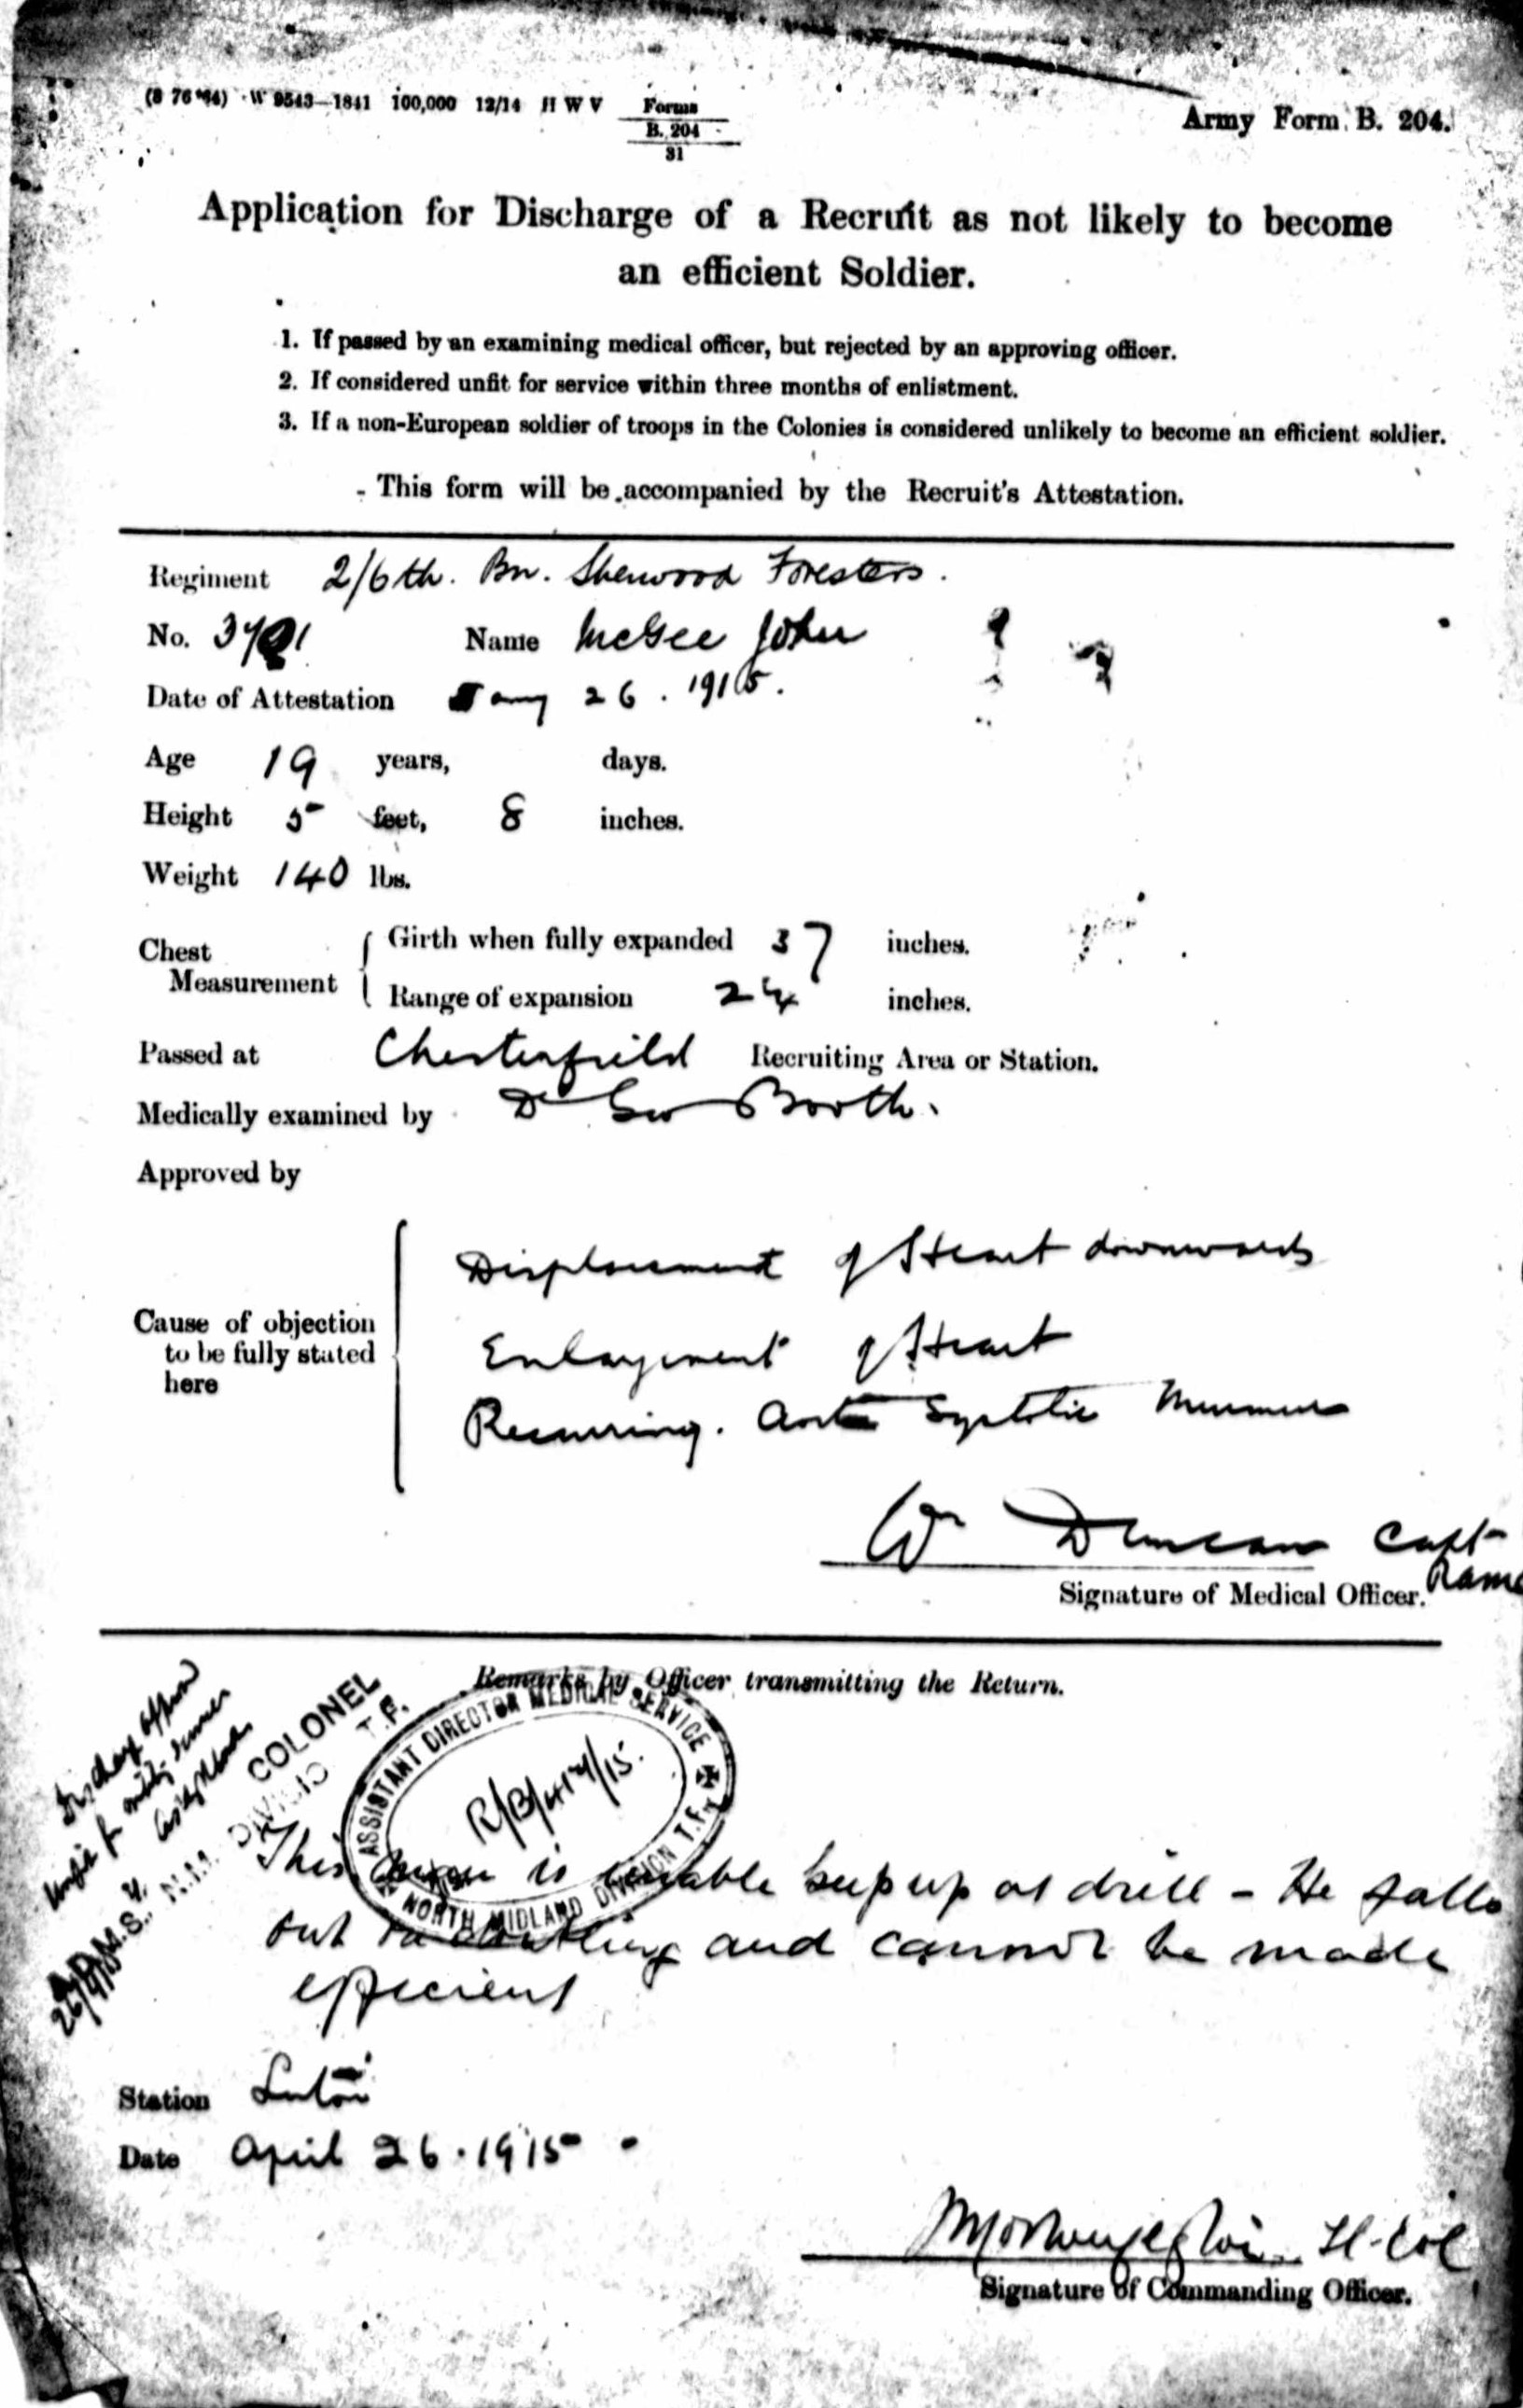 W 9543—1841 100,000 12/14 H W V Forms
B. 204
31
Army Form B. 204.
Application for Discharge of a Recruit as not likely to become
an efficient Soldier.
1. If passed by an examining medical officer, but rejected by an approving officer.
2. If considered unfit for service within three months of enlistment.
3. If a non-European soldier of troops in the Colonies is considered unlikely to become an efficient soldier.
This form will be accompanied by the Recruit's Attestation.
Regiment 2/6th. Bn. Sherwood Foresters.
No. Name McGee John
Date of Attestation Jany 26. 1915.
Age 19 years, days.
Height 5 feet, 8 inches.
Weight 140 lbs.
Chest Measurement { Girth when fully expanded 37 inches.
Range of expansion inches.
Passed at Chesterfield Recruiting Area or Station.
Medically examined by Dr Geo Booth.
Approved by
Cause of objection to be fully stated here
Displacement of Heart downwards
Enlargement of Heart
Recurring. Systolic Murmur
Wm Duncan Capt
RAMC
Signature of Medical Officer.
Remarks by Officer transmitting the Return.
ASSISTANT DIRECTOR MEDICAL SERVICE
NORTH MIDLAND DIVISION T.F.
COLONEL
T.F.
A.D.M.S., N.M. DIVISIO
This man is unable keep up at drill - He falls
out and cannot be made
efficient
Station Luton
Date April 26. 1915
Lt-Col
Signature of Commanding Officer.